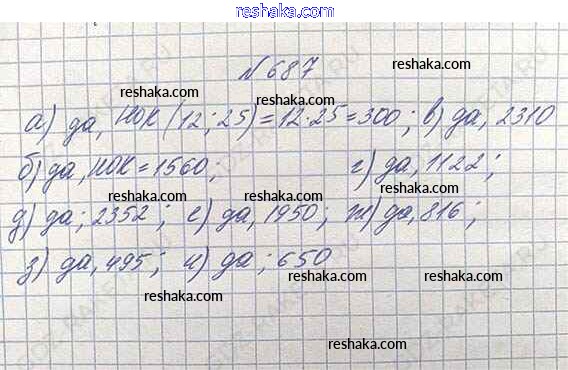 reshaka.com
№687
а) да, НОК (12; 25) = 12·25 = 300; в) да, 2310
б) да, НОК = 1560; г) да, 1122;
д) да; 2352; е) да, 1950; ж) да, 816;
з) да, 495; и) да; 650
reshaka.com
reshaka.com
reshaka.com
reshaka.com
reshaka.com
reshaka.com
reshaka.com
reshaka.com
reshaka.com
reshaka.com